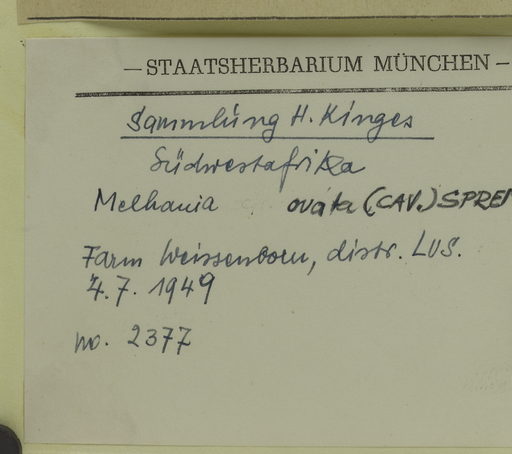 — STAATSHERBARIUM MÜNCHEN —
Sammlung H. Kinges
Südwestafrika
Melhania ovata (CAV.) SPRE
Farm Weissenborn, distr. LUS.
4.7. 1949
no. 2377